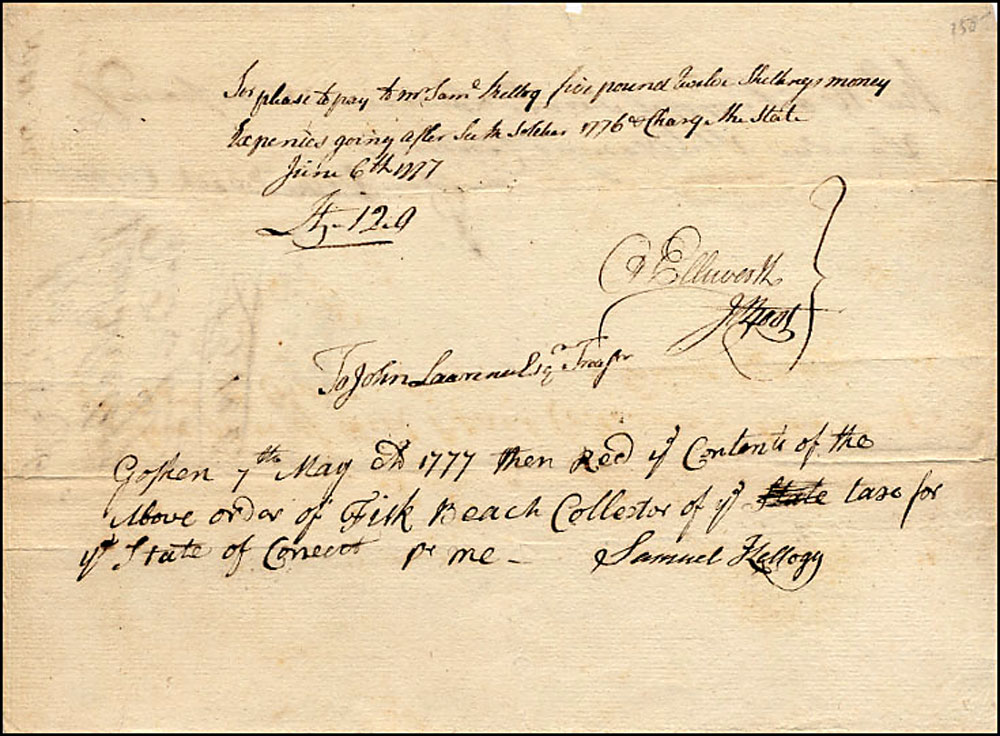 158-
Sir please to pay to mr Sam.ll Kellog five pound Twelve Shillings money
Expences going after Sick Soldier 1776 & Charge the State
June 6th 1777
12..0
O Ellsworth
J Root
To John Lawrence Esqr Treasr
Goshen 7th May AD 1777 then Recd ye Contents of the
Above order of Fisk Beach Collector of ye State taxe for
ye State of Connectt pr me - Samuel Kellogg